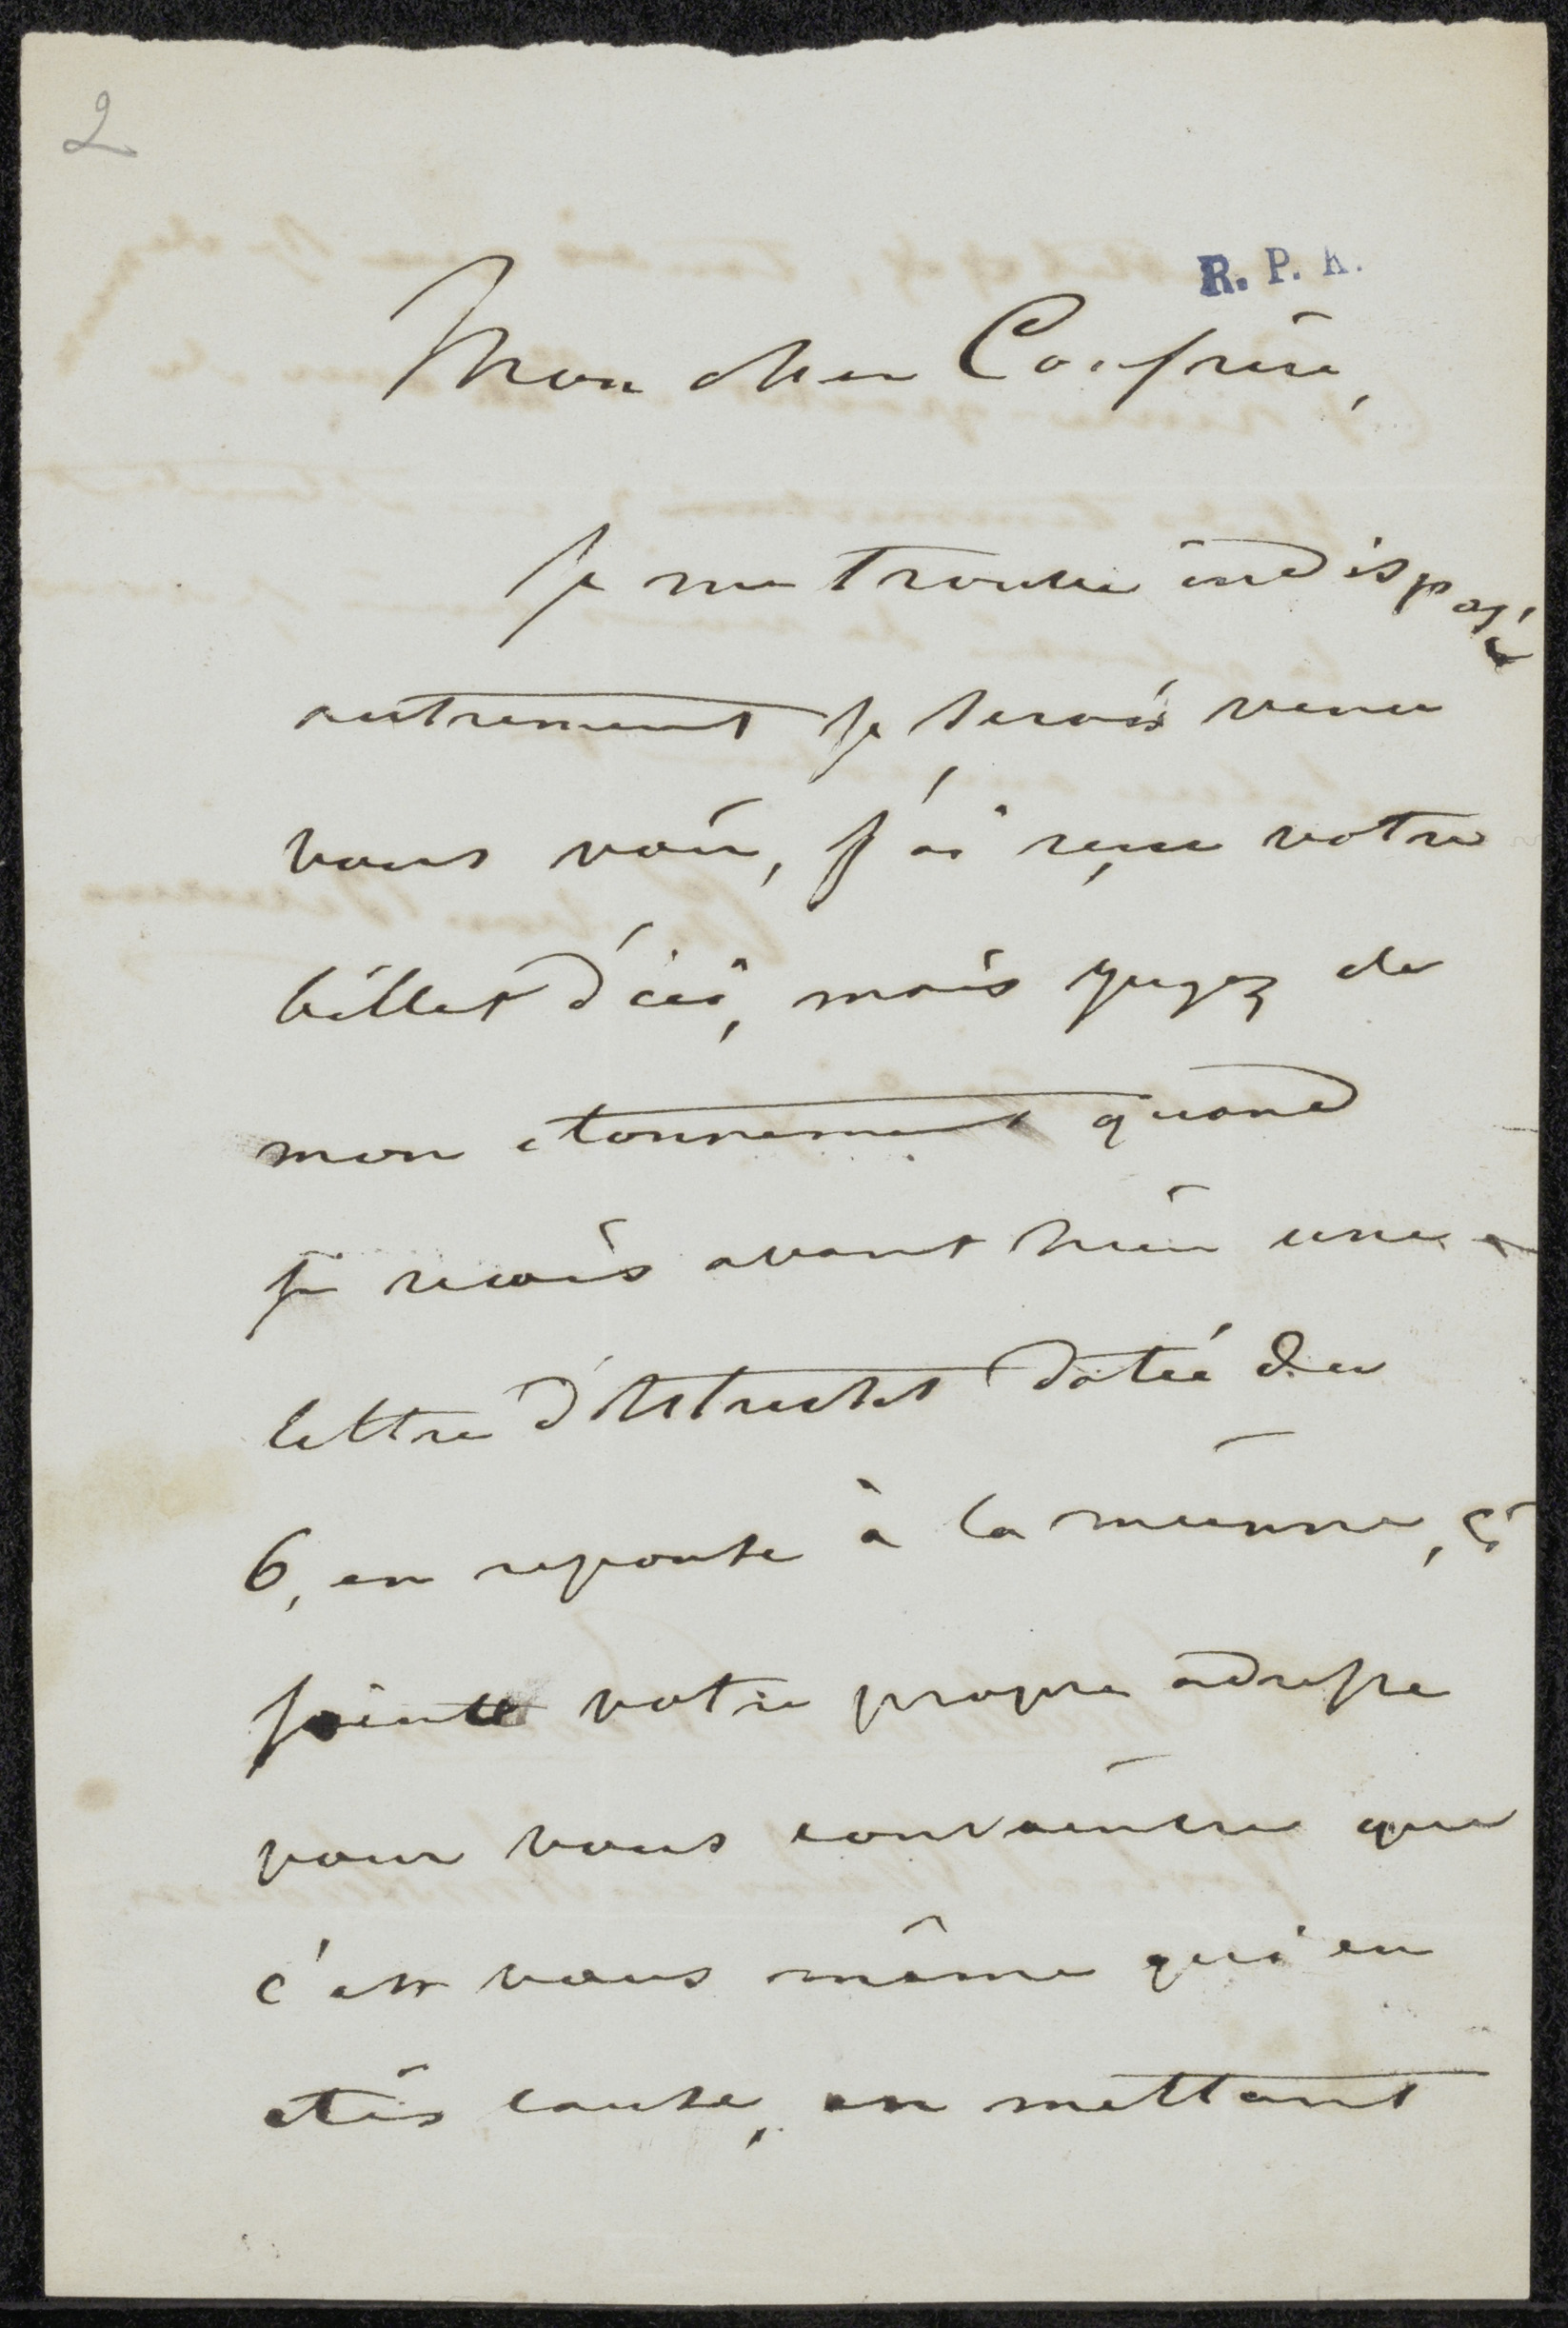 2
R. P. K.
Mon cher Confrère,
Je me trouve indisposé
autrement je serais venu
vous voir, j'ai reçu votre
billet d'ici, mais jugez de
mon etonnement quand
je recois avant hier une
lettre d'Utrecht datée du
6, en reponse à la mienne, ci
jointe votre propre adresse
pour vous convaincre que
c'est vous même qui en
etis cause, en mettant